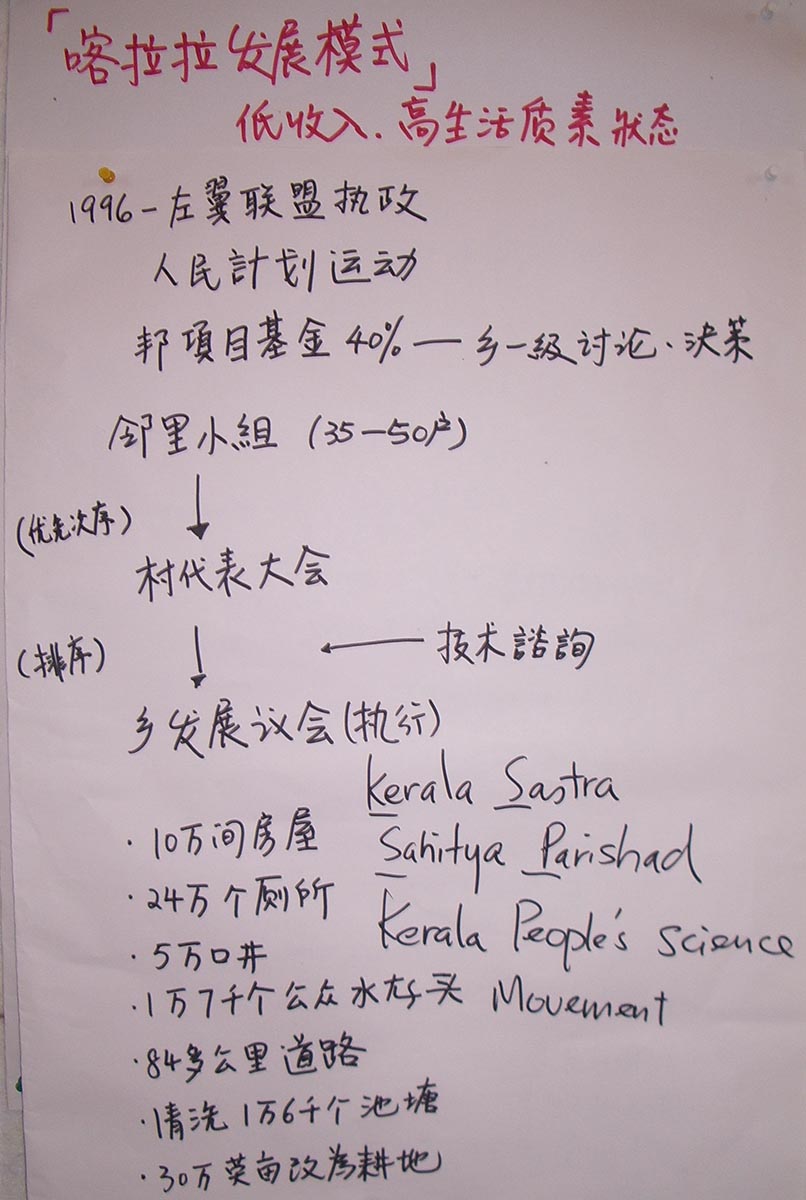 「喀拉拉发展模式」
低收入.高生活质素狀态
1996－左翼联盟执政
人民計划运动
邦項目基金 40% — 乡一級讨论、決策
邻里小組 (35－50户)
↓
(优先次序)
村代表大会
(排序) ↓ ← 技术諮詢
乡发展议会(执行)
Kerala Sastra
Sahitya Parishad
Kerala People's Science
Movement
·10万间房屋
·24万个厕所
·5万口井
·1万7千个公众水龙头
·84多公里道路
·清洗1万6千个池塘
·30万英亩改為耕地